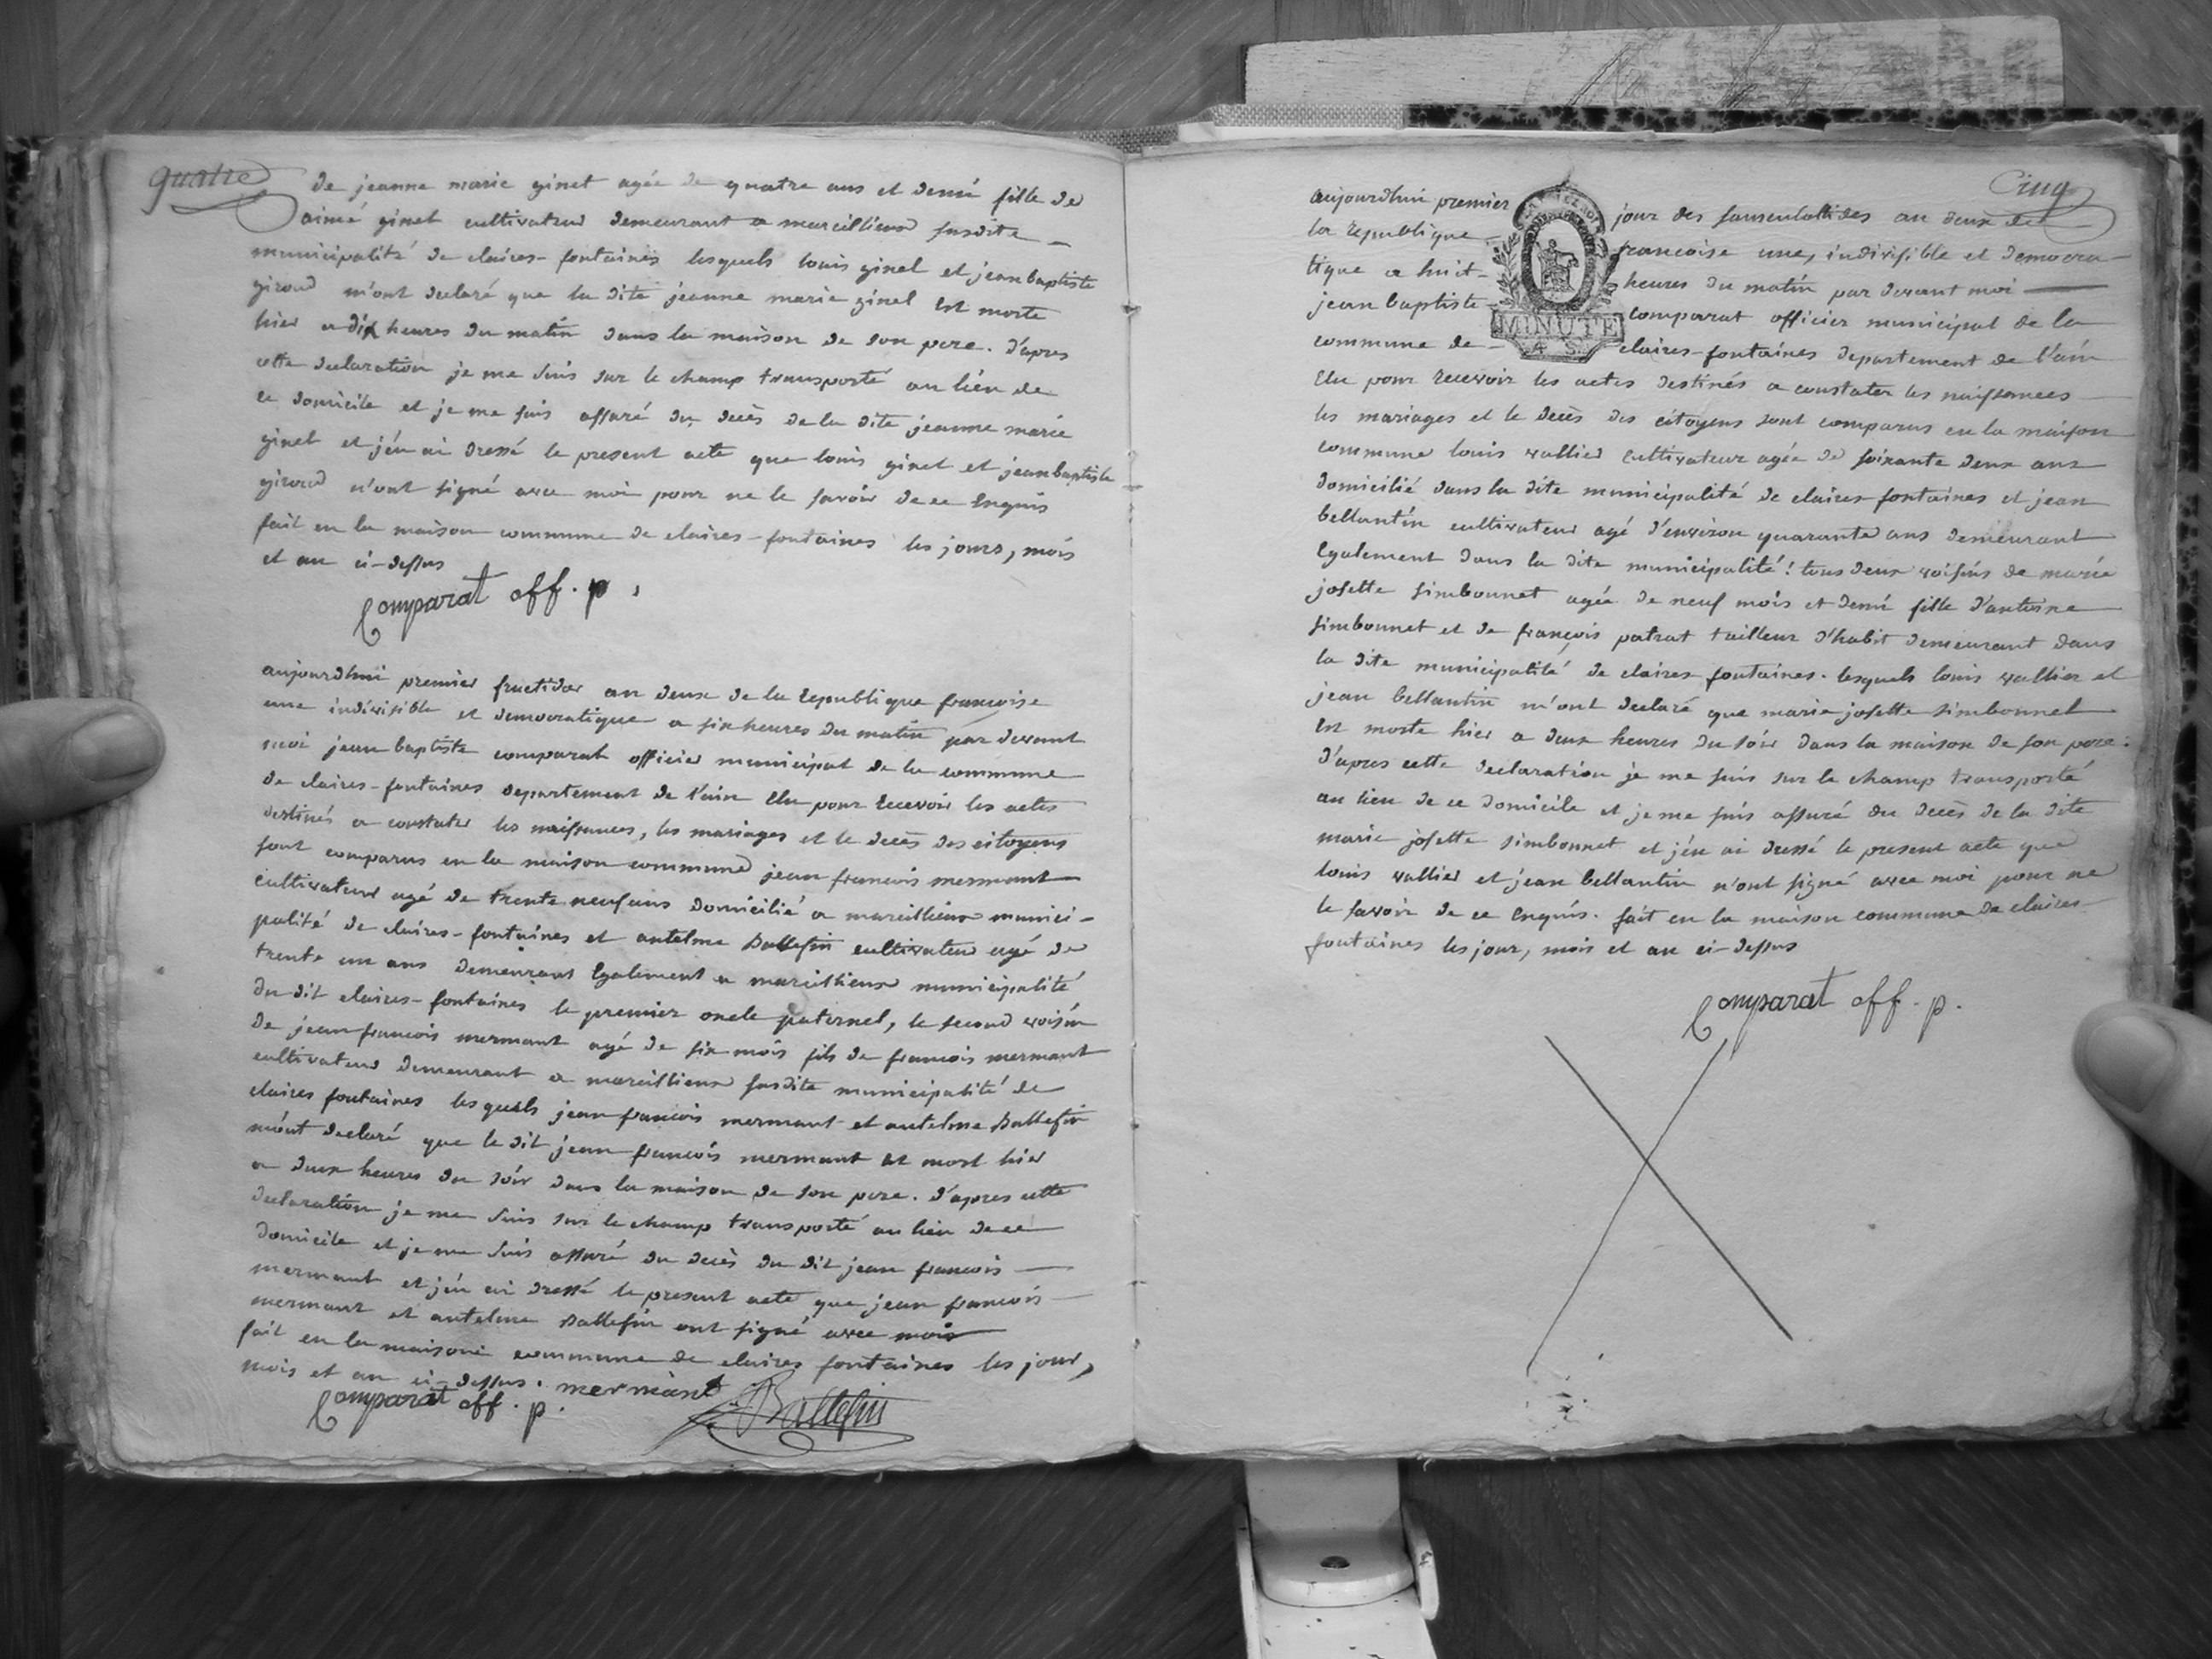 quatre
de jeanne marie ginet agée de quatre ans et demi fille de
aimé ginet cultivateur demeurant a marcillieux susdite
municipalité de claires-fontaines lesquels louis ginet et jean baptiste
giroud m'ont declaré que la dite jeanne marie ginet est morte
hier a dix heures du matin dans la maison de son pere. d'apres
cette declaration je me suis sur le champ transporté au lieu de
ce domicile et je me suis assuré du decès de la dite jeanne marie
ginet et j'en ai dressé le present acte que louis ginet et jean baptiste
giroud n'ont signé avec moi pour ne le savoir de ce enquis
fait en la maison commune de claires-fontaines les jours, mois
et an ci-dessus
Comparat off. p.
aujourdhui premier fructidor an deux de la republique françoise
une indivisible et democratique a six heures du matin par devant
moi jean baptiste comparat officier municipal de la commune
de claires-fontaines departement de l'ain elu pour recevoir les actes
destinés a constater les naissances, les mariages et le decès des citoyens
sont comparus en la maison commune jean françois mermant
cultivateur agé de trente neuf ans domicilié a marcillieux munici-
palité de claires-fontaines et antelme Ballefin cultivateur agé de
trente un ans demeurant egalement a marcillieux municipalité
du dit claires-fontaines le premier oncle paternel, le second voisin
de jean françois mermant agé de six mois fils de françois mermant
cultivateur demeurant a marcillieux susdite municipalité de
claires fontaines lesquels jean françois mermant et antelme Ballefin
m'ont declaré que le dit jean françois mermant est mort hier
a deux heures du soir dans la maison de son pere. d'apres cette
declaration je me suis sur le champ transporté au lieu de ce
domicile et je me suis assuré du decès du dit jean françois
mermant et j'en ai dressé le present acte que jean françois
mermant et antelme Ballefin ont signé avec moi
fait en la maison commune de claires fontaines les jour,
mois et an ci-dessus. mermant
Comparat off. p. Ballefin
Cinq
MINUTE
4 S.
aujourdhui premier jour des sansculottides an deux de
la republique françoise une, indivisible et democra-
tique a huit heures du matin par devant moi
jean baptiste Comparat officier municipal de la
commune de claires-fontaines departement de l'ain
elu pour recevoir les actes destinés a constater les naissances
les mariages et le decès des citoyens sont comparus en la maison
commune louis vallier cultivateur agée de soixante deux ans
domicilié dans la dite municipalité de claires-fontaines et jean
bellantin cultivateur agé d'environ quarante ans demeurant
egalement dans la dite municipalité! tous deux voisins de marie
josette simbonnet agée de neuf mois et demi fille d'antoine
simbonnet et de françois patrat tailleur d'habit demeurant dans
la dite municipalité de claires-fontaines. lesquels louis vallier et
jean bellantin m'ont declaré que marie josette simbonnet
est morte hier a deux heures du soir dans la maison de son pere.
d'apres cette declaration je me suis sur le champ transporté
au lieu de ce domicile et je me suis assuré du decès de la dite
marie josette simbonnet et j'en ai dressé le present acte que
louis vallier et jean bellantin n'ont signé avec moi pour ne
le savoir de ce enquis. fait en la maison commune de claires-
fontaines les jour, mois et an ci-dessus
Comparat off. p.